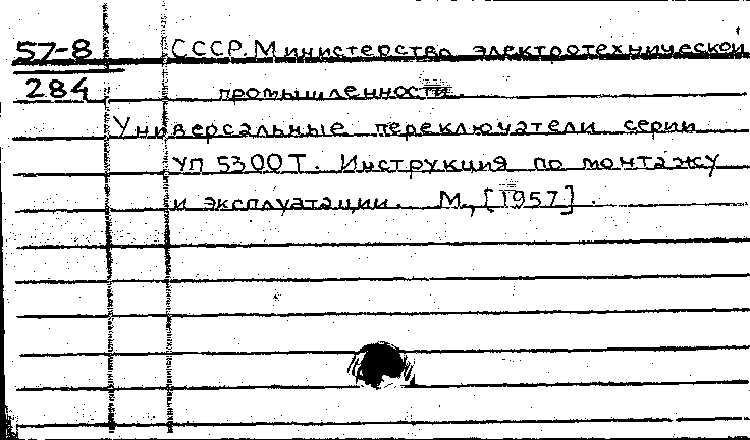 57-8 СССР. Министерство электротехнической
284 промышленности.
Универсальные переключатели серии
УП 5300Т. Инструкция по монтажу
и эксплуатации. М., [1957].